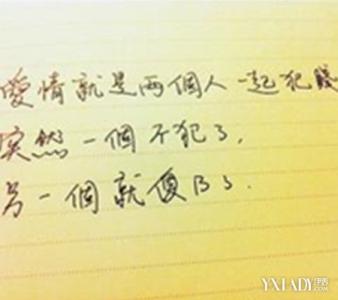 愛情就是兩個人一起犯賤
突然一個不犯了,
另一個就傻B了.
YXLADY.COM